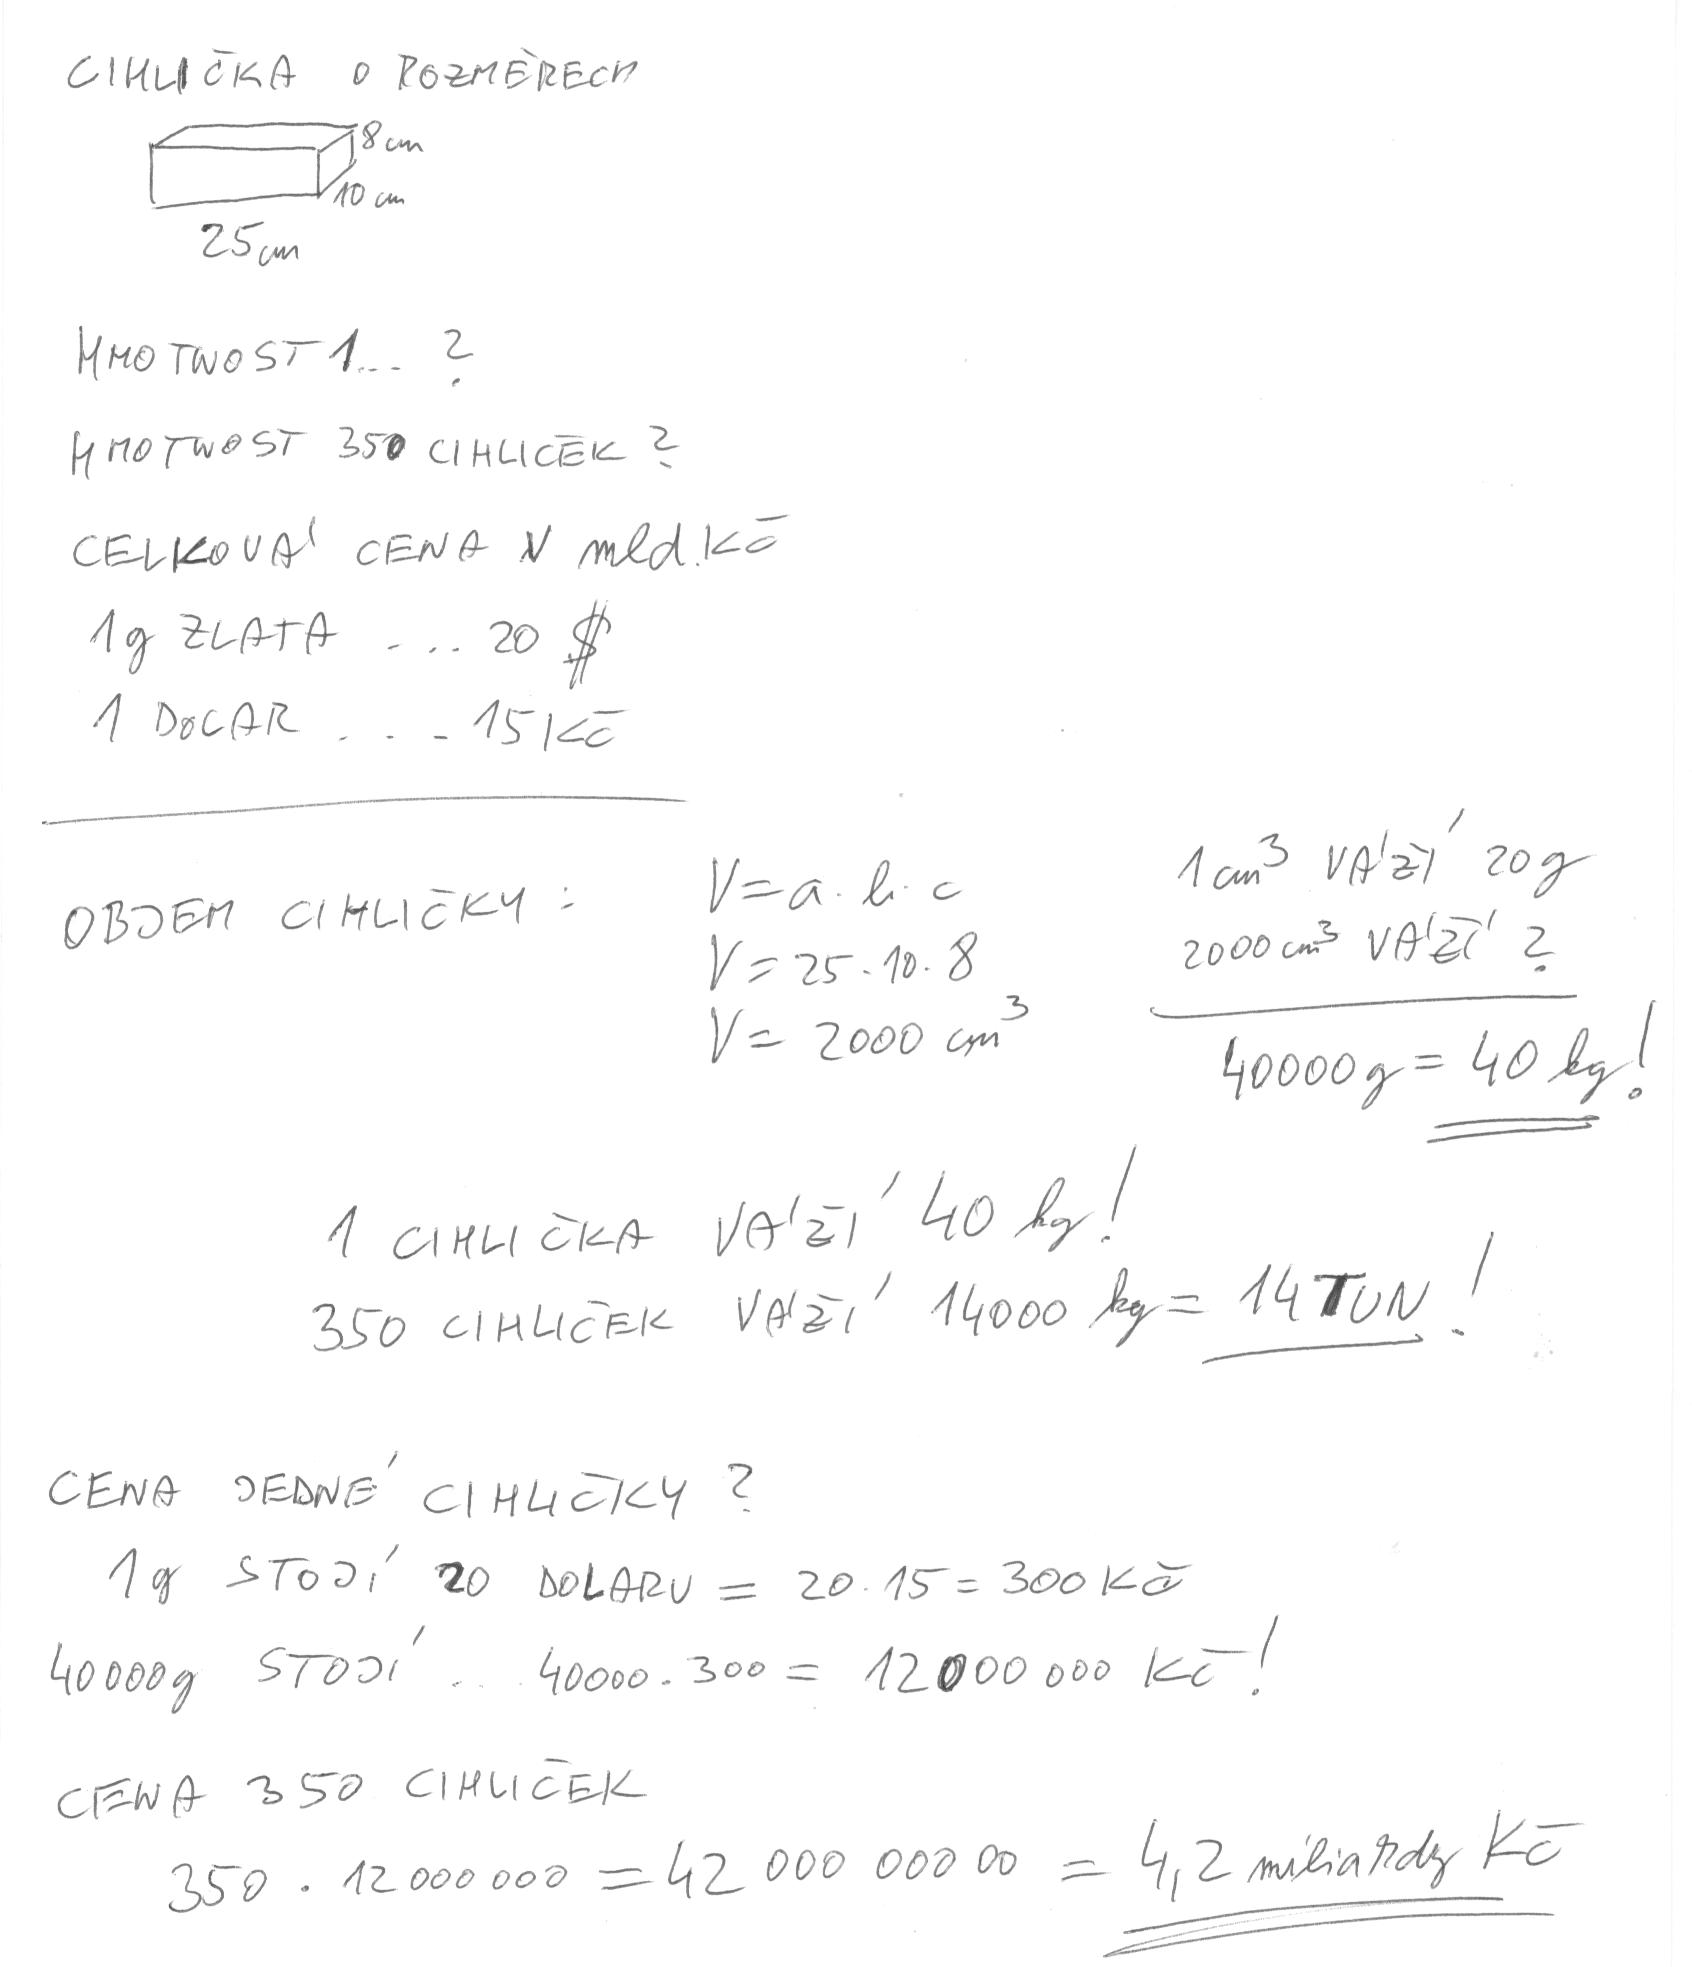 CIHLIČKA O ROZMĚRECH
8 cm
10 cm
25 cm
HMOTNOST 1... ?
HMOTNOST 350 CIHLIČEK ?
CELKOVÁ CENA V mld. Kč
1g ZLATA .... 20 $
1 DOLAR .... 15 Kč
OBJEM CIHLIČKY :
V = a . b . c
V = 25 . 10 . 8
V = 2000 cm³
1 cm³ VÁŽÍ 20g
2000 cm³ VÁŽÍ ?
40000g = 40 kg!
1 CIHLIČKA VÁŽÍ 40 kg!
350 CIHLIČEK VÁŽÍ 14000 kg = 14 TUN!
CENA JEDNÉ CIHLIČKY ?
1g STOJÍ 20 DOLARU = 20 . 15 = 300 Kč
40000g STOJÍ ... 40000 . 300 = 12000 000 Kč!
CENA 350 CIHLIČEK
350 . 12 000 000 = 42 000 000 00 = 4,2 miliardy Kč